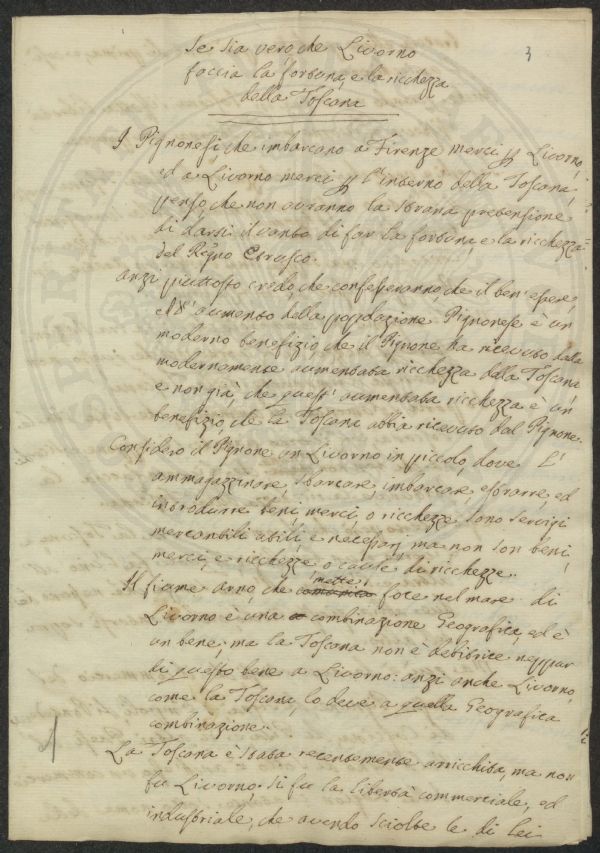 3
Se sia vero che Livorno
faccia la fortuna, e la ricchezza
della Toscana
I Pignonesi che imbarcano a Firenze merci p Livorno,
ed a Livorno merci p l'interno della Toscana,
penso che non avranno la strana pretensione
di darsi il vanto di far la fortuna, e la ricchezza
del Regno Etrusco.
Anzi piuttosto credo, che confesseranno che il ben'essere,
e l'aumento della popolazione Pignonese è un
moderno benefizio, che il Pignone ha ricevuto dalla
modernamente aumentata ricchezza dalla Toscana
e non già, che quest'aumentata ricchezza è un
benefizio, che la Toscana abbia ricevuto dal Pignone.
Considero il Pignone un Livorno in piccolo, dove l'
ammagazzinare, sbarcare, imbarcare, estrarre, ed
introdurre beni, merci, o ricchezze sono servizi
mercantili utili, e necessarj, ma non son beni,
merci, e ricchezze o cause di ricchezze.
Il fiume Arno, che mette foce nel mare di
Livorno è una combinazione Geografica, ed è
un bene; ma la Toscana non è debitrice neppur
di questo bene a Livorno: anzi anche Livorno,
come la Toscana, lo deve a quella Geografica
combinazione.
La Toscana è stata recentemente arricchita, ma non
fu Livorno. Si fu la libertà commerciale, ed
industriale, che avendo sciolte le di lei